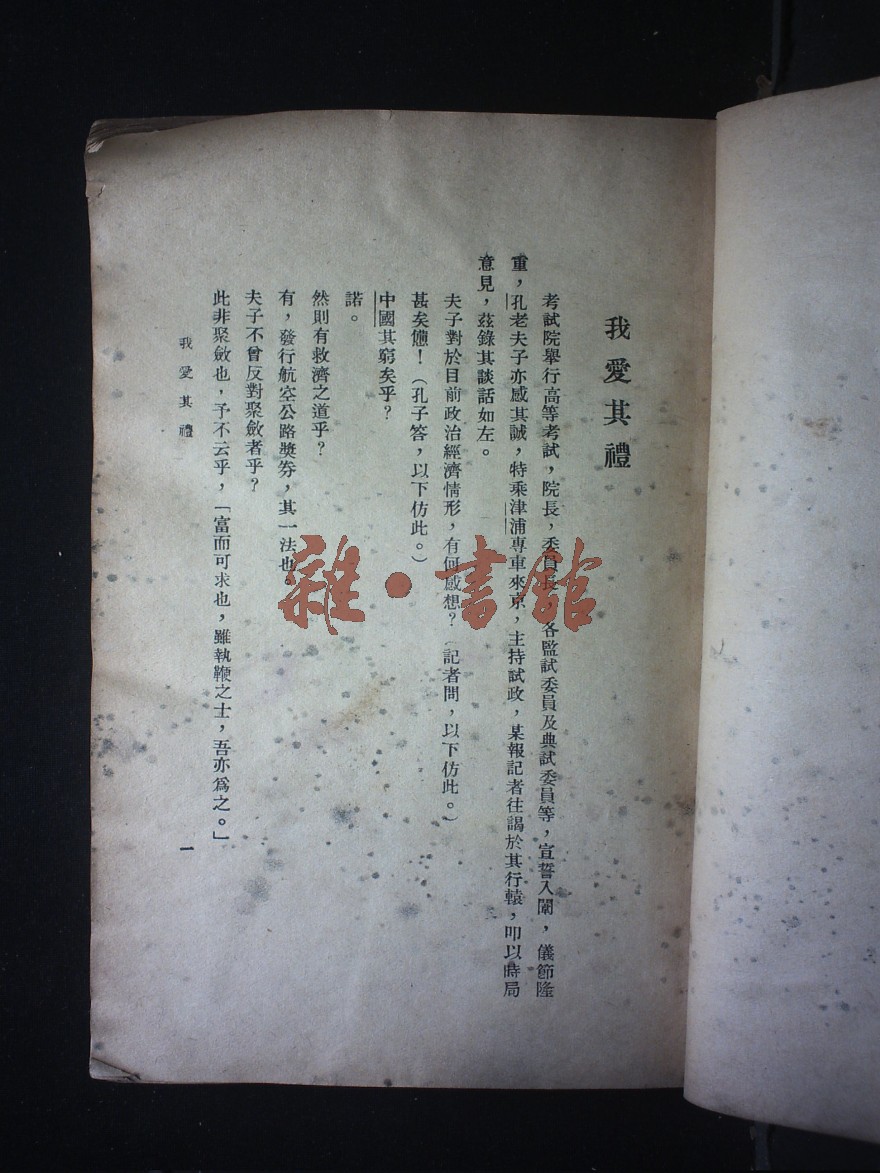 我愛其禮
考試院舉行高等考試，院長，委員長，各監試委員及典試委員等，宣誓入闈，儀節隆
重，孔老夫子亦感其誠，特乘津浦專車來京，主持試政，某報記者往謁於其行轅，叩以時局
意見，茲錄其談話如左。
夫子對於目前政治經濟情形，有何感想？（記者問，以下仿此。）
甚矣憊！（孔子答，以下仿此。）
中國其窮矣乎？
諾。
然則有救濟之道乎？
有，發行航空公路獎券，其一法也。
夫子不曾反對聚斂者乎？
此非聚斂也，予不云乎，「富而可求也，雖執鞭之士，吾亦為之。」
我愛其禮
一
雜·書館